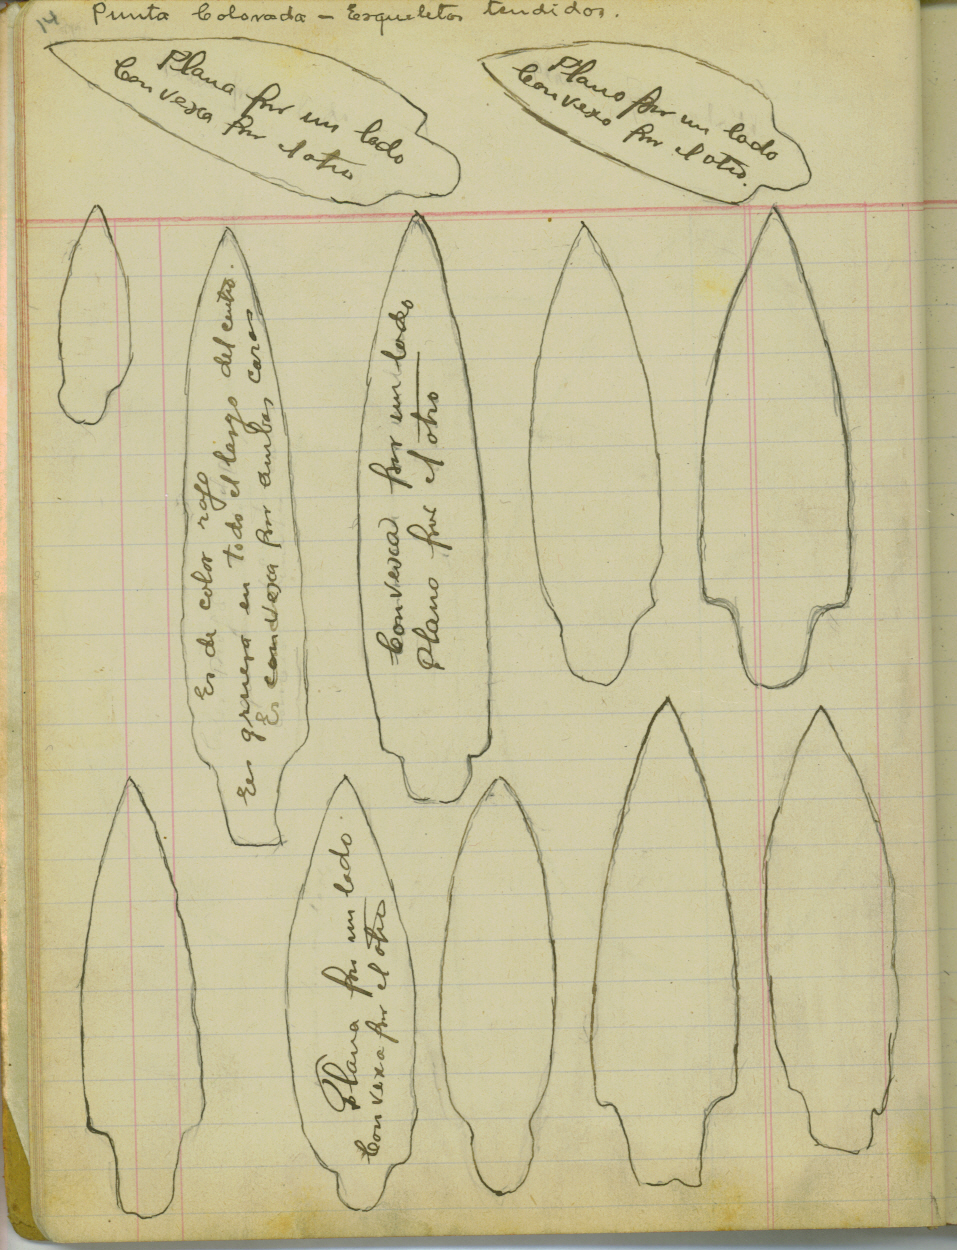 14
Punta Colorada - Esqueletos tendidos.
Plana por un lado
Convexa por el otro
Plano por un lado
Convexo por el otro.
Es de color rojo
Es gruesa en todo el largo del centro.
Es convexa por ambas caras
Convexa por un lado
Plano por el otro
Plana por un lado.
Convexa por el otro